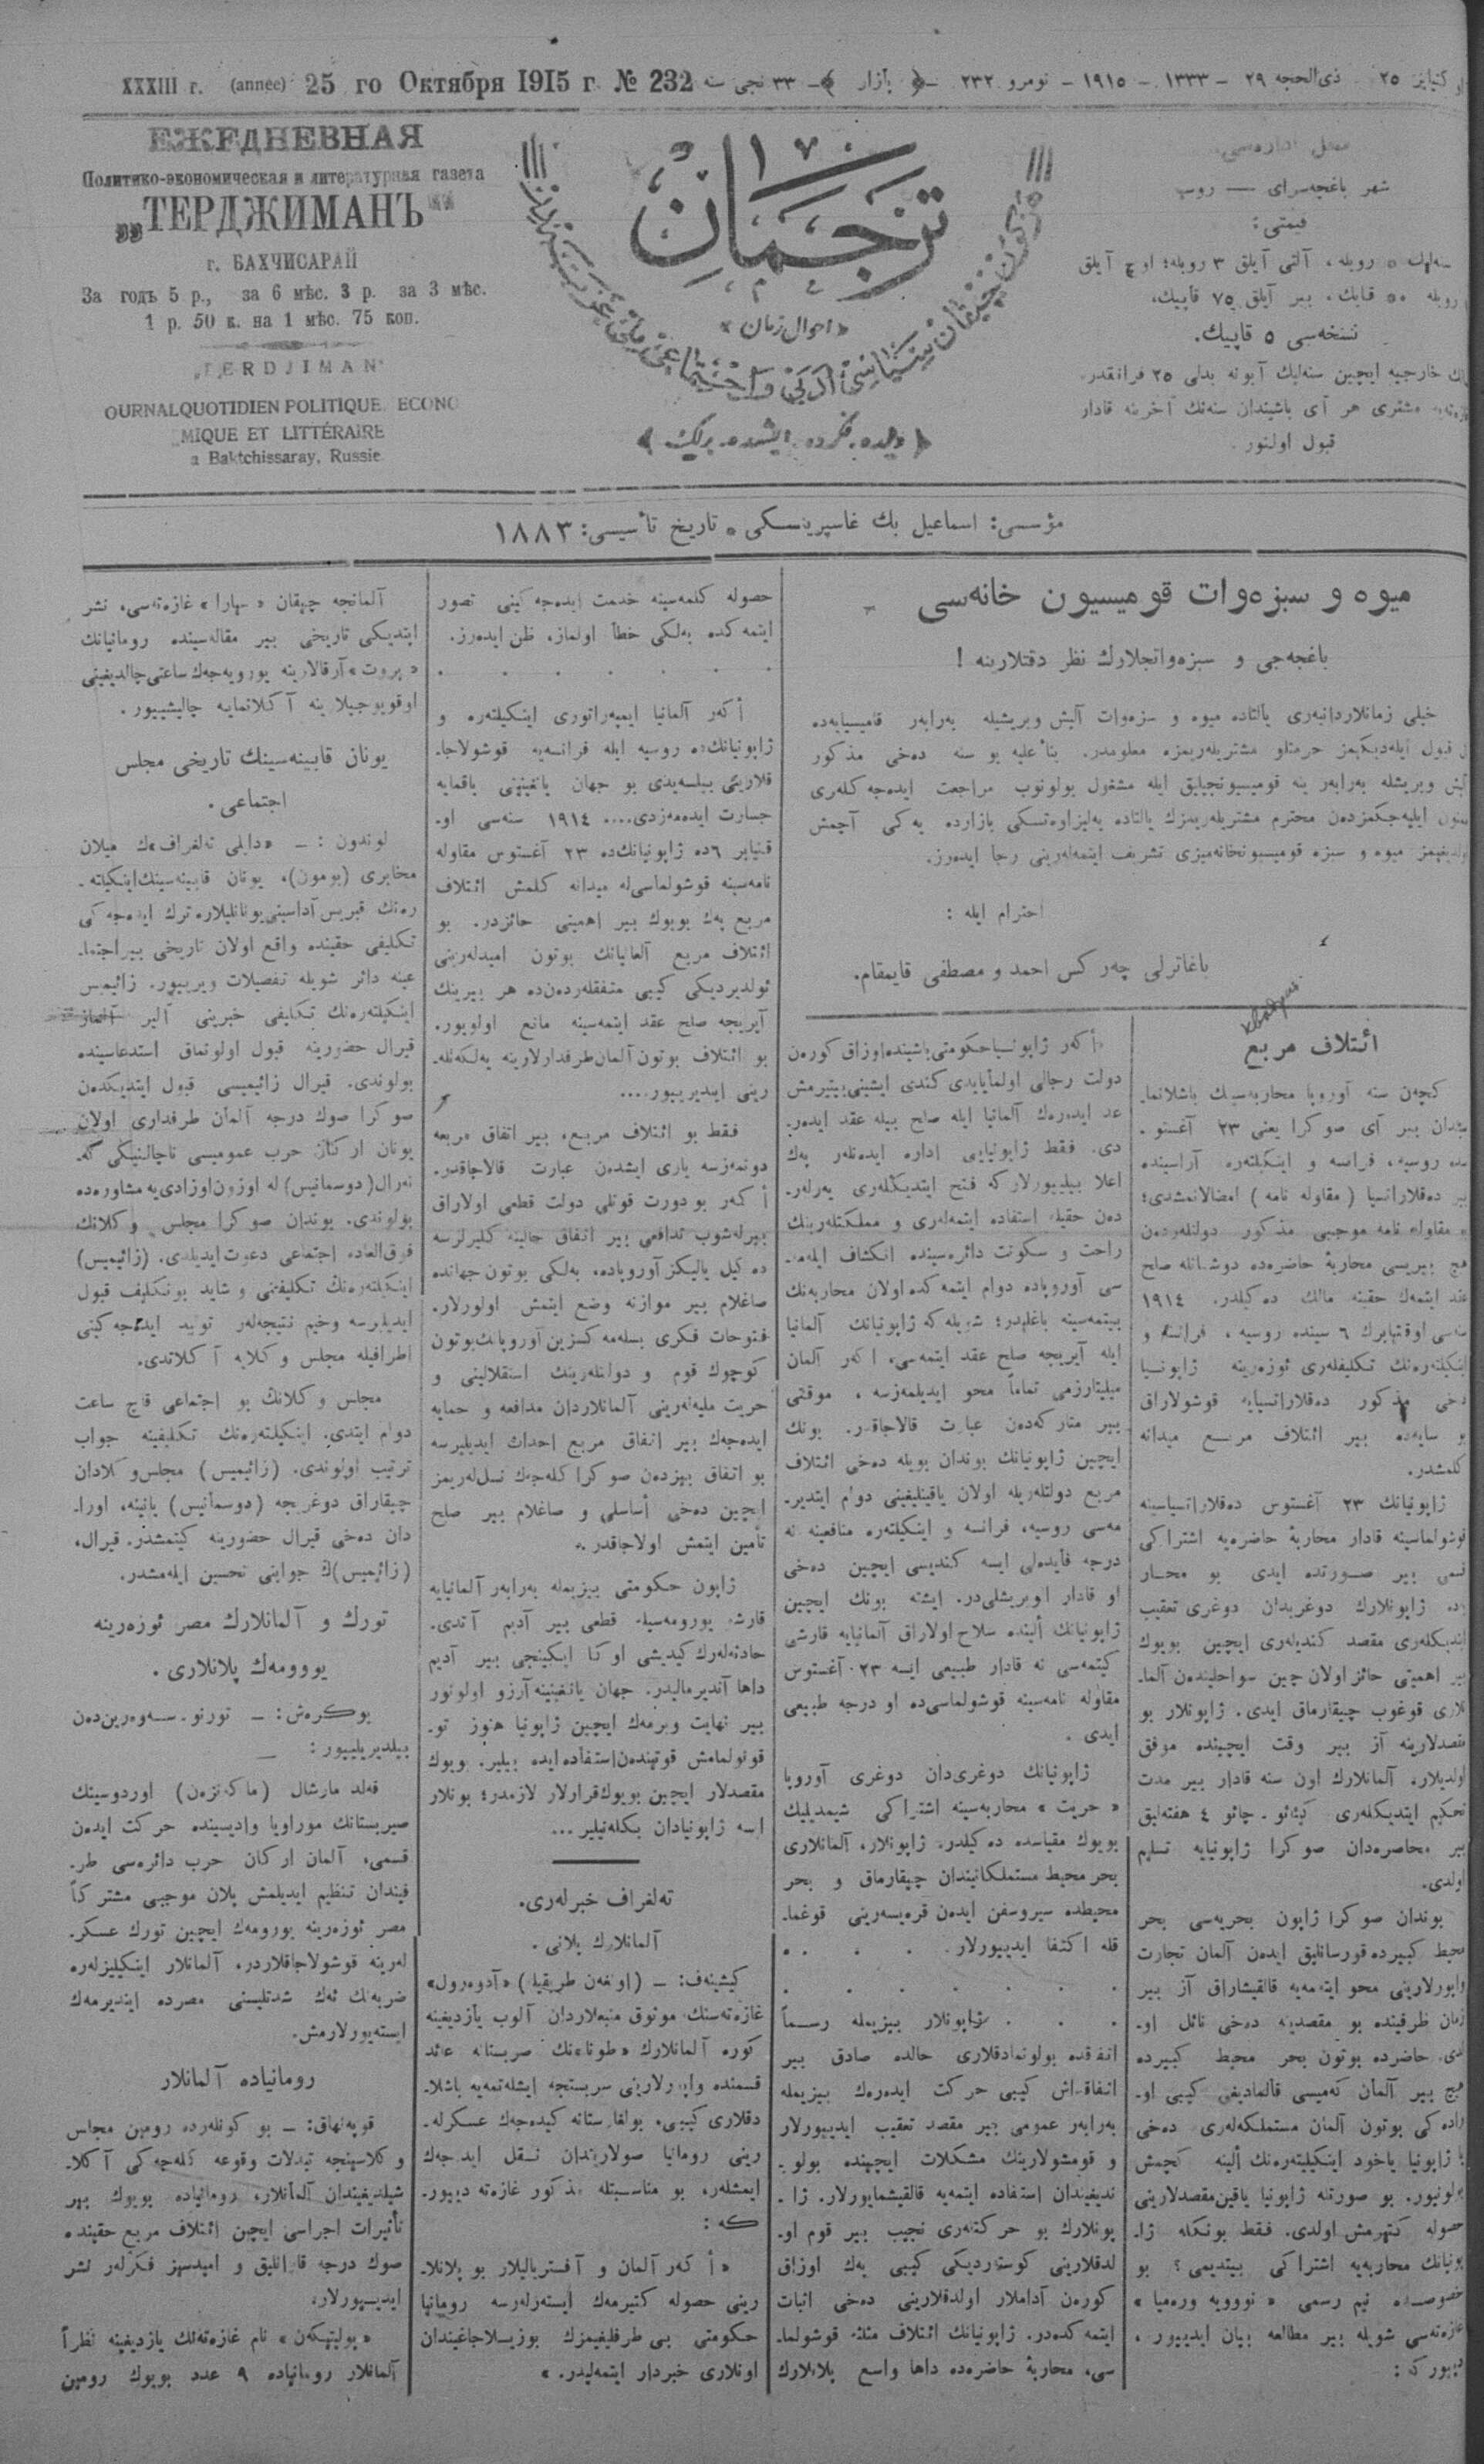 XXXIII г. (annee) 25 го Октября 1915 г. № 232
٣٣ نجی سنه ﴿ بازار ﴾ نومرو ٢٣٢ – ١٩١٥ – ١٣٣٣ – ذی‌الحجه ٢٩
ЕЖЕДНЕВНАЯ
Политико-экономическая и литературная газета
„ТЕРДЖИМАНЪ“
г. БАХЧИСАРАЙ
За годъ 5 р., за 6 мѣс. 3 р. за 3 мѣс.
1 р. 50 к. на 1 мѣс. 75 коп.
„TERDJIMAN“
OURNAL QUOTIDIEN POLITIQUE, ECONO
MIQUE ET LITTÉRAIRE
a Baktchissaray, Russie
ترجمان
«احوال زمان»
﴿ دیلده، فکرده، ایشده، برلك ﴾
شهر باغچه‌سرای — روسیه
قیمتی:
سنه‌لك ٥ روبله، آلتی آیلق ٣ روبله؛ اوچ آیلق
روبله ٥٠ قاپك، بیر آیلق ٧٥ قاپیك،
نسخه‌سی ٥ قاپیك.
خارجیه ایچین سنه‌لیك آبونه بدلی ٢٥ فرانقدر.
مشتری هر آی باشیندان سنه‌نك آخرینه قادار
قبول اولنور.
مؤسسی: اسماعیل بك غاسپرینسكی * تاریخ تأسیسی: ١٨٨٣
میوه و سبزه‌وات قومیسیون خانه‌سی
باغچه‌جی و سبزه‌واتجلارك نظر دقتلارینه !
خیلی زمانلاردانبه‌ری یالتاده میوه و سبزه‌وات آلیش ویریشیله به‌رابه‌ر قامیسیایه‌ده
قبول ایله‌دیكیمز حرمتلو مشتریله‌ریمزه معلومدر. بناً علیه بو سنه ده‌خی مذكور
آلیش ویریشله به‌رابه‌ر ینه قومیسیونجیلیق ایله مشغول بولونوب مراجعت ایده‌جه‌كله‌ری
ممنون ایلیه‌جكمزدن محترم مشتریله‌ریمزك یالتاده یه‌لیزاوه‌تسكی بازارده یه‌كی آچمش
اولدیغیمز میوه و سبزه قومیسیونخانه‌میزی تشریف ایتمه‌له‌رینی رجا ایده‌رز.
احترام ایله :
باغاترلی چه‌ركس احمد و مصطفی قایمقام.
ائتلاف مربع
كچه‌ن سنه آوروپا محاربه‌سینك باشلانما-
سیندان بیر آی صوكرا یعنی ٢٣ آغستو-
سده روسیه، فرانسه و اینكیلته‌ره آراسینده
بیر ده‌قلاراتسیا (مقاوله نامه) امضالانمشدی؛
مقاوله نامه موجبی مذكور دولتله‌ردن
هیچ بیریسی محاربهٔ حاضره‌ده دوشمانله صلح
عقد ایتمه‌ك حقینه مالك ده‌گیلدر. ١٩١٤
سنه‌سی اوقتیابرك ٦ سینده روسیه، فرانسه و
اینكیلته‌ره‌نك تكلیفله‌ری ئوزه‌رینه ژاپونیا
دخی مذكور ده‌قلاراتسیایه قوشولاراق
بو سایه‌ده بیر ائتلاف مربع میدانه
كلمشدر.
ژاپونیانك ٢٣ آغستوس ده‌قلاراتسیاسینه
قوشولماسینه قادار محاربهٔ حاضره‌یه اشتراكی
ژاپونلارك دوغریدان دوغری تعقیب
ایتدیكله‌ری مقصد كندیله‌ری ایچین بویوك
بیر اهمیتی حائز اولان چین سواحلیندن آلما-
نلاری قوغوب چیقارماق ایدی. ژاپونلار بو
مقصدلارینه آز بیر وقت ایچینده موفق
اولدیلار. آلمانلارك اون سنه قادار بیر مدت
تحكیم ایتدیكله‌ری كیائو - چائو ٤ هفته‌لیق
بیر محاصره‌دان صوكرا ژاپونیایه تسلیم
اولدی.
بوندان صوكرا ژاپون بحریه‌سی بحر
محیط كبیرده قورسانلیق ایدن آلمان تجارت
واپورلارینی محو ایتمه‌یه قالقیشاراق آز بیر
زمان ظرفینده بو مقصدینه ده‌خی نائل او-
لدی. حاضرده بوتون بحر محیط كبیرده
هیچ بیر آلمان گه‌میسی قالمادیغی كیبی او-
راده‌كی بوتون آلمان مستملكه‌له‌ری ده‌خی
یا ژاپونیا یاخود اینكیلیته‌ره‌نك ألینه كچمش
بولونیور. بو صورتله ژاپونیا یاقین مقصدلارینی
حصوله كتیرمش اولدی. فقط بونكله ژا-
پونیانك محاربه‌یه اشتراكی بیتدیمی؟ بو
خصوصده نیم رسمی « نوویه وره‌میا »
غازه‌ته‌سی شویله بیر مطالعه بیان ایدییور،
دییوركه :
«أكه‌ر ژاپونیا حكومتی باشینده اوزاق كوره‌ن
دولت رجالی اولمایایدی كندی ایشینی بیتیرمش
عد ایده‌رك آلمانیا ایله صلح بیله عقد ایده‌ر-
دی. فقط ژاپونیایی اداره ایده‌نله‌ر پك
اعلا بیلییورلاركه فتح ایتدیكله‌ری یه‌رله‌ر-
دن حقیله استفاده ایتمه‌له‌ری و مملكتله‌رینك
راحت و سكونت دائره‌سینده انكشاف ایله‌مه-
سی آوروپاده دوام ایتمه‌كده اولان محاربه‌نك
بیتمه‌سینه باغلیدر؛ شویله‌كه ژاپونیانك آلمانیا
ایله آیریجه صلح عقد ایتمه‌سی، اكه‌ر آلمان
میلیتاریزمی تماماً محو ایدیلمه‌زسه، موقتی
بیر متاركه‌دن عبارت قالاجاقدر. بونك
ایچین ژاپونیانك بوندان بویله ده‌خی ائتلاف
مربع دولتله‌ریله اولان یاقینلیغینی دوام ایتدیر-
مه‌سی روسیه، فرانسه و اینكیلته‌ره منافعینه نه
درجه فایده‌لی ایسه كندیسی ایچین ده‌خی
او قادار اویریشلی‌در. ایشته بونك ایچین
ژاپونیانك ألینده سلاح اولاراق آلمانیایه قارشی
كیتمه‌سی نه قادار طبیعی ایسه ٢٣ آغستوس
مقاوله نامه‌سینه قوشولماسی‌ده او درجه طبیعی
ایدی.
ژاپونیانك دوغری‌دان دوغری آوروپا
« حریت » محاربه‌سینه اشتراكی شیمدیلیك
بویوك مقیاسده ده‌گیلدر. ژاپونلار، آلمانلاری
بحر محیط مستملكاتیندان چیقارماق و بحر
محیطده سیر و سفر ایدن قره‌یسه‌رینی قوغما-
قله اكتفا ایدییورلار. . . . .
. . . . . . .
. . . ژاپونلار بیزیمله رسماً
اتفقده بولونمادقلاری حالده صادق بیر
اتفاقداش كیبی حركت ایده‌رك بیزیمله
به‌رابه‌ر عمومی بیر مقصد تعقیب ایدییورلار
و قومشولارینك مشكلات ایچینده بولو-
ندیغیندان استفاده ایتمه‌یه قالقیشمایورلار. ژا-
پونلارك بو حركتله‌ری نجیب بیر قوم او-
لدقلارینی كوسته‌ردیكی كیبی پك اوزاق
كوره‌ن آداملار اولدقلارینی ده‌خی اثبات
ایتمه‌كده‌در. ژاپونیانك ائتلاف مثلثه قوشولما-
سی، محاربهٔ حاضره‌ده داها واسع پلانلارك
حصوله كلمه‌سینه خدمت ایده‌جه‌كینی تصور
ایتمه‌كده به‌لكی خطأ اولماز، ظن ایده‌رز.
. . . . . . .
أكه‌ر آلمانیا ایمپه‌راتوری اینكیلته‌ره و
ژاپونیانك‌ده روسیه ایله فرانسه‌یه قوشولاجا-
قلارینی بیلسه‌یدی بو جهان یانغینینی یاقمایه
جسارت ایده‌مه‌زدی.... ١٩١٤ سنه‌سی او-
قتیابر ٦ده ژاپونیانك‌ده ٢٣ آغستوس مقاوله
نامه‌سینه قوشولماسی‌له میدانه كلمش ائتلاف
مربع پك بویوك بیر اهمیتی حائزدر. بو
ائتلاف مربع آلمانیانك بوتون امیدله‌رینی
ئولدیردیكی كیبی متفقله‌ردن‌ده هر بیرینك
آیریجه صلح عقد ایتمه‌سینه مانع اولویور.
بو ائتلاف بوتون آلمان طرفدارلارینه یه‌لكه‌نله-
رینی ایندیرییور....
فقط بو ائتلاف مربع، بیر اتفاق مربعه
دونمه‌زسه یاری ایشدن عبارت قالاجاقدر.
أكه‌ر بو دورت قوتلی دولت قطعی اولاراق
بیرله‌شوب تدافعی بیر اتفاق حالینه كلیرلرسه
ده‌گیل یالیكز آوروپاده، به‌لكی بوتون جهانده
صاغلام بیر موازنه وضع ایتمش اولورلار.
فتوحات فكری بسله‌مه‌كسزین آوروپانك بوتون
كوچوك قوم و دولتله‌رینك استقلالینی و
حریت ملیه‌له‌رینی آلمانلاردان مدافعه و حمایه
ایده‌جه‌ك بیر اتفاق مربع احداث ایدیلیرسه
بو اتفاق بیزدن صوكرا كله‌جه‌ك نسل‌له‌ریمز
ایچین ده‌خی أساسلی و صاغلام بیر صلح
تأمین ایتمش اولاجاقدر.»
ژاپون حكومتی بیزیمله به‌رابه‌ر آلمانیایه
قارشی یورومه‌سیله قطعی بیر آدیم آتدی.
حادثه‌له‌رك كیدیشی اوكا ایكینجی بیر آدیم
داها آتدیرمالیدر. جهان یانغینینه آرزو اولونور
بیر نهایت ویرمه‌ك ایچین ژاپونیا هنوز تو-
قونولمامش قوتیندن استفاده ایده بیلیر. بویوك
مقصدلار ایچین بویوك قرارلار لازمدر؛ بونلار
ایسه ژاپونیادان بكله‌نیلیر...
ته‌لغراف خبرله‌ری.
آلمانلارك پلانی.
كیشینه‌ف: – (اونغه‌ن طریقیله) «آدوه‌رول»
غازه‌ته‌سنك موثوق منبعلاردان آلوب یازدیغینه
كوره آلمانلارك «طونا»نك صربستانه عائد
قسمنده واپورلارینی سربستجه ایشله‌تمه‌یه باشلا-
دقلاری كیبی، بولغارستانه كیده‌جه‌ك عسكرله-
رینی رومانیا صولاریندان نقل ایده‌جه‌ك
ایمشله‌ر، بو مناسبتله مذكور غازه‌ته دییور-
كه :
« أكه‌ر آلمان و آفستریالیلار بو پلانلا-
رینی حصوله كتیرمه‌ك ایسته‌رله‌رسه رومانیا
حكومتی بی‌طرفلیغیمزك بوزیلاجاغیندان
اونلاری خبردار ایتمه‌لیدر. »
آلمانجه چیقان « سپارا » غازه‌ته‌سی، نشر
ایتدیكی تاریخی بیر مقاله‌سینده رومانیانك
«پروت» آرقالارینه یورویه‌جه‌ك ساعتی چالدیغینی
اوقویوجیلارینه آكلاتمایه چالیشییور.
یونان قابینه‌سینك تاریخی مجلس
اجتماعی.
لوندون: – «دایلی ته‌لغراف»ك میلان
مخابری (بومون)، یونان قابینه‌سینك اینكیلته-
ره‌نك قبریس آداسینی یونانلیلاره ترك ایده‌جه‌كی
تكلیفی حقینده واقع اولان تاریخی بیر اجتما-
عینه دائر شویله تفصیلات ویرییور. زائیمیس
اینكیلته‌ره‌نك تكلیفی خبرینی آلیر آلماز
قیرال حضورینه قبول اولونماق استدعاسینده
بولوندی. قیرال زائیمیسی قبول ایتدیكدن
صوكرا صوك درجه آلمان طرفداری اولان
یونان اركان حرب عمومیسی ناچالنیكی گه-
نه‌رال (دوسمانیس) له اوزون اوزادی‌یه مشاوره‌ده
بولوندی. بوندان صوكرا مجلس وكلانك
فوق‌العاده اجتماعی دعوت ایدیلدی. (زائیمیس)
اینكیلته‌ره‌نك تكلیفینی و شاید بو تكلیف قبول
ایدیلیرسه وخیم نتیجه‌له‌ر تولید ایده‌جه‌كینی
اطرافیله مجلس وكلایه آكلاتدی.
مجلس وكلانك بو اجتماعی قاچ ساعت
دوام ایتدی. اینكیلته‌ره‌نك تكلیفینه جواب
ترتیب اولوندی. (زائیمیس) مجلس وكلادان
چیقاراق دوغریجه (دوسمانیس) یانینه، اورا-
دان ده‌خی قیرال حضورینه كیتمشدر. قیرال،
(زائیمیس)ك جوابنی تحسین ایله‌مشدر.
تورك و آلمانلارك مصر ئوزه‌رینه
یوروومه‌ك پلانلاری.
بوكره‌ش: – تورنو - سه‌وه‌رین‌دن
بیلدیریلییور: –
فه‌لد مارشال (ماكه‌نزه‌ن) اوردوسینك
صیربستانك موراویا وادیسینده حركت ایدن
قسمی، آلمان اركان حرب دائره‌سی طر-
فیندان تنظیم ایدیلمش پلان موجبی مشتركاً
مصر ئوزه‌رینه یورومه‌ك ایچین تورك عسكر-
له‌رینه قوشولاجاقلاردر. آلمانلار اینكیلیزله‌ره
ضربه‌نك ئه‌ك شدتلیسنی مصرده ایندیرمه‌ك
ایسته‌یورلارمش.
رومانیاده آلمانلار
قوپه‌نهاق: – بو كونله‌رده رومین مجلس
وكلاسینجه تبدلات وقوعه كله‌جه‌كی آكلا-
شیلدیغیندان آلمانلار، رومانیاده بویوك بیر
تأثیرات اجراسی ایچین ائتلاف مربع حقینده
صوك درجه قارانلیق و امیدسیز فكرله‌ر نشر
ایدییورلار.
«پولیتیكه‌ن» نام غازه‌ته‌نك یازدیغینه نظراً
آلمانلار رومانیاده ٩ عدد بویوك رومین